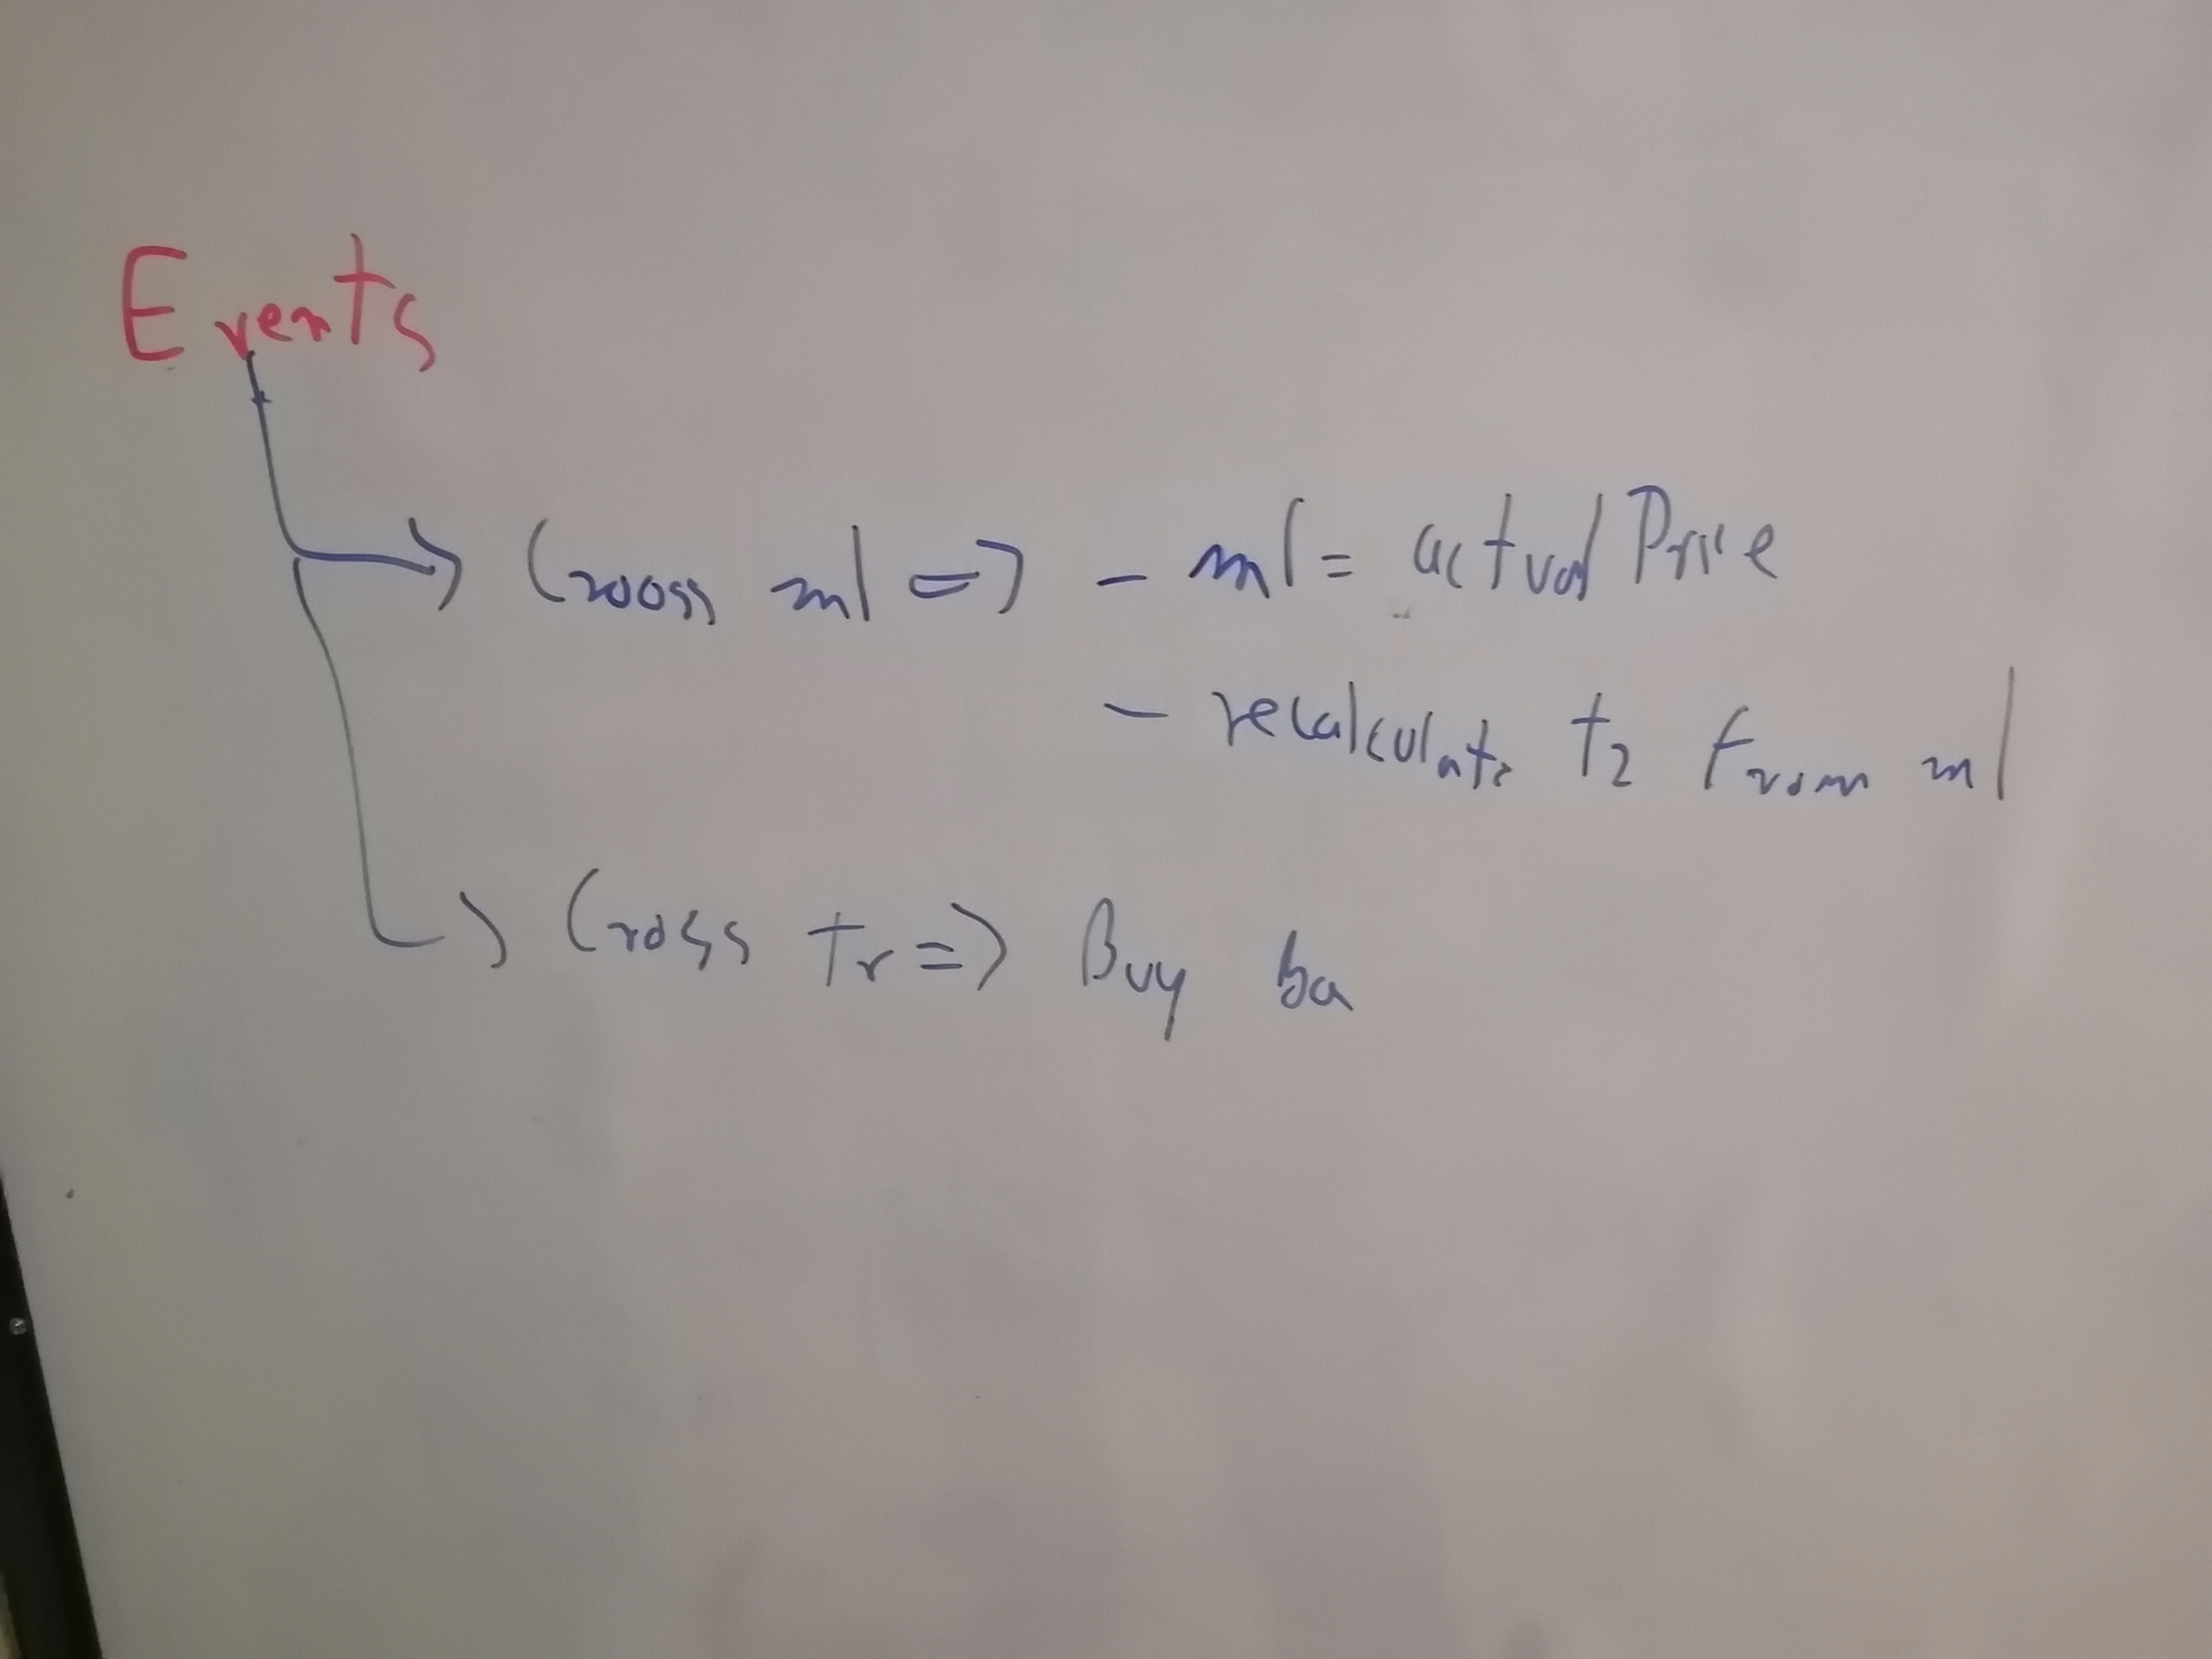 Events
Crooss ml => - ml = actual Price
- recalculate t2 From ml
Cross tr => Buy ba